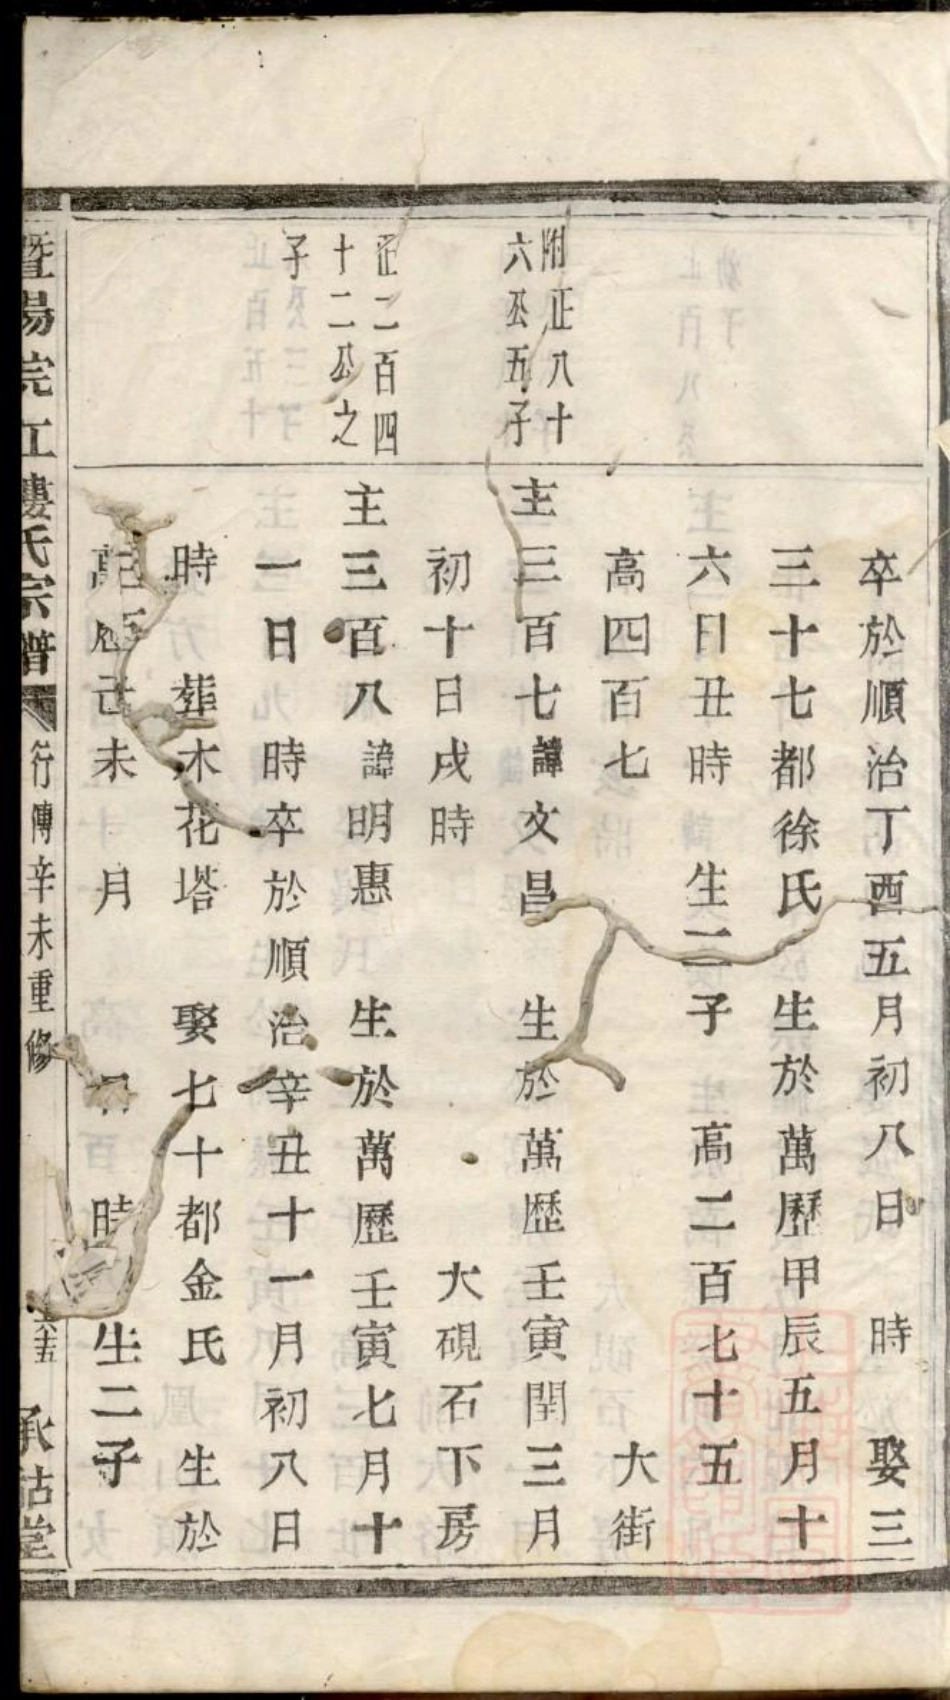 卒於順治丁酉五月初八日 時 娶三
三十七都徐氏 生於萬歷甲辰五月十
六日丑時 生二子 高二百七十五
高四百七 大街
附正八十
六公五子
主三百七諱文昌 生於萬歷壬寅閏三月
初十日戌時 大硯石下房
正二百四
十二公之
子
主三百八諱明惠 生於萬歷壬寅七月十
一日 時卒於順治辛丑十一月初八日
時 葬木花塔 娶七十都金氏 生於
萬歷己未 月 日 時 生二子
暨陽浣江婁氏宗譜 行傳辛未重修 六五 承祜堂